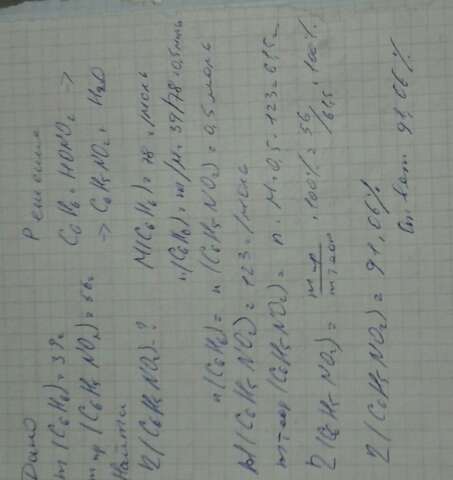 Дано
m (C6H6) = 39г
m пр (C6H5NO2) = 56г
Найти
η (C6H5NO2) - ?
Решение
C6H6 + HONO2 →
→ C6H5NO2 + H2O
M(C6H6) = 78 г/моль
n(C6H6) = m/M = 39/78 = 0,5 моль
n(C6H6) = n(C6H5NO2) = 0,5 моль
M(C6H5NO2) = 123 г/моль
m теор (C6H5NO2) = n · M = 0,5 · 123 = 61,5г
η (C6H5NO2) = m пр / m теор · 100% = 56/61,5 · 100%
η (C6H5NO2) = 91,06%
Ответ 91,06%